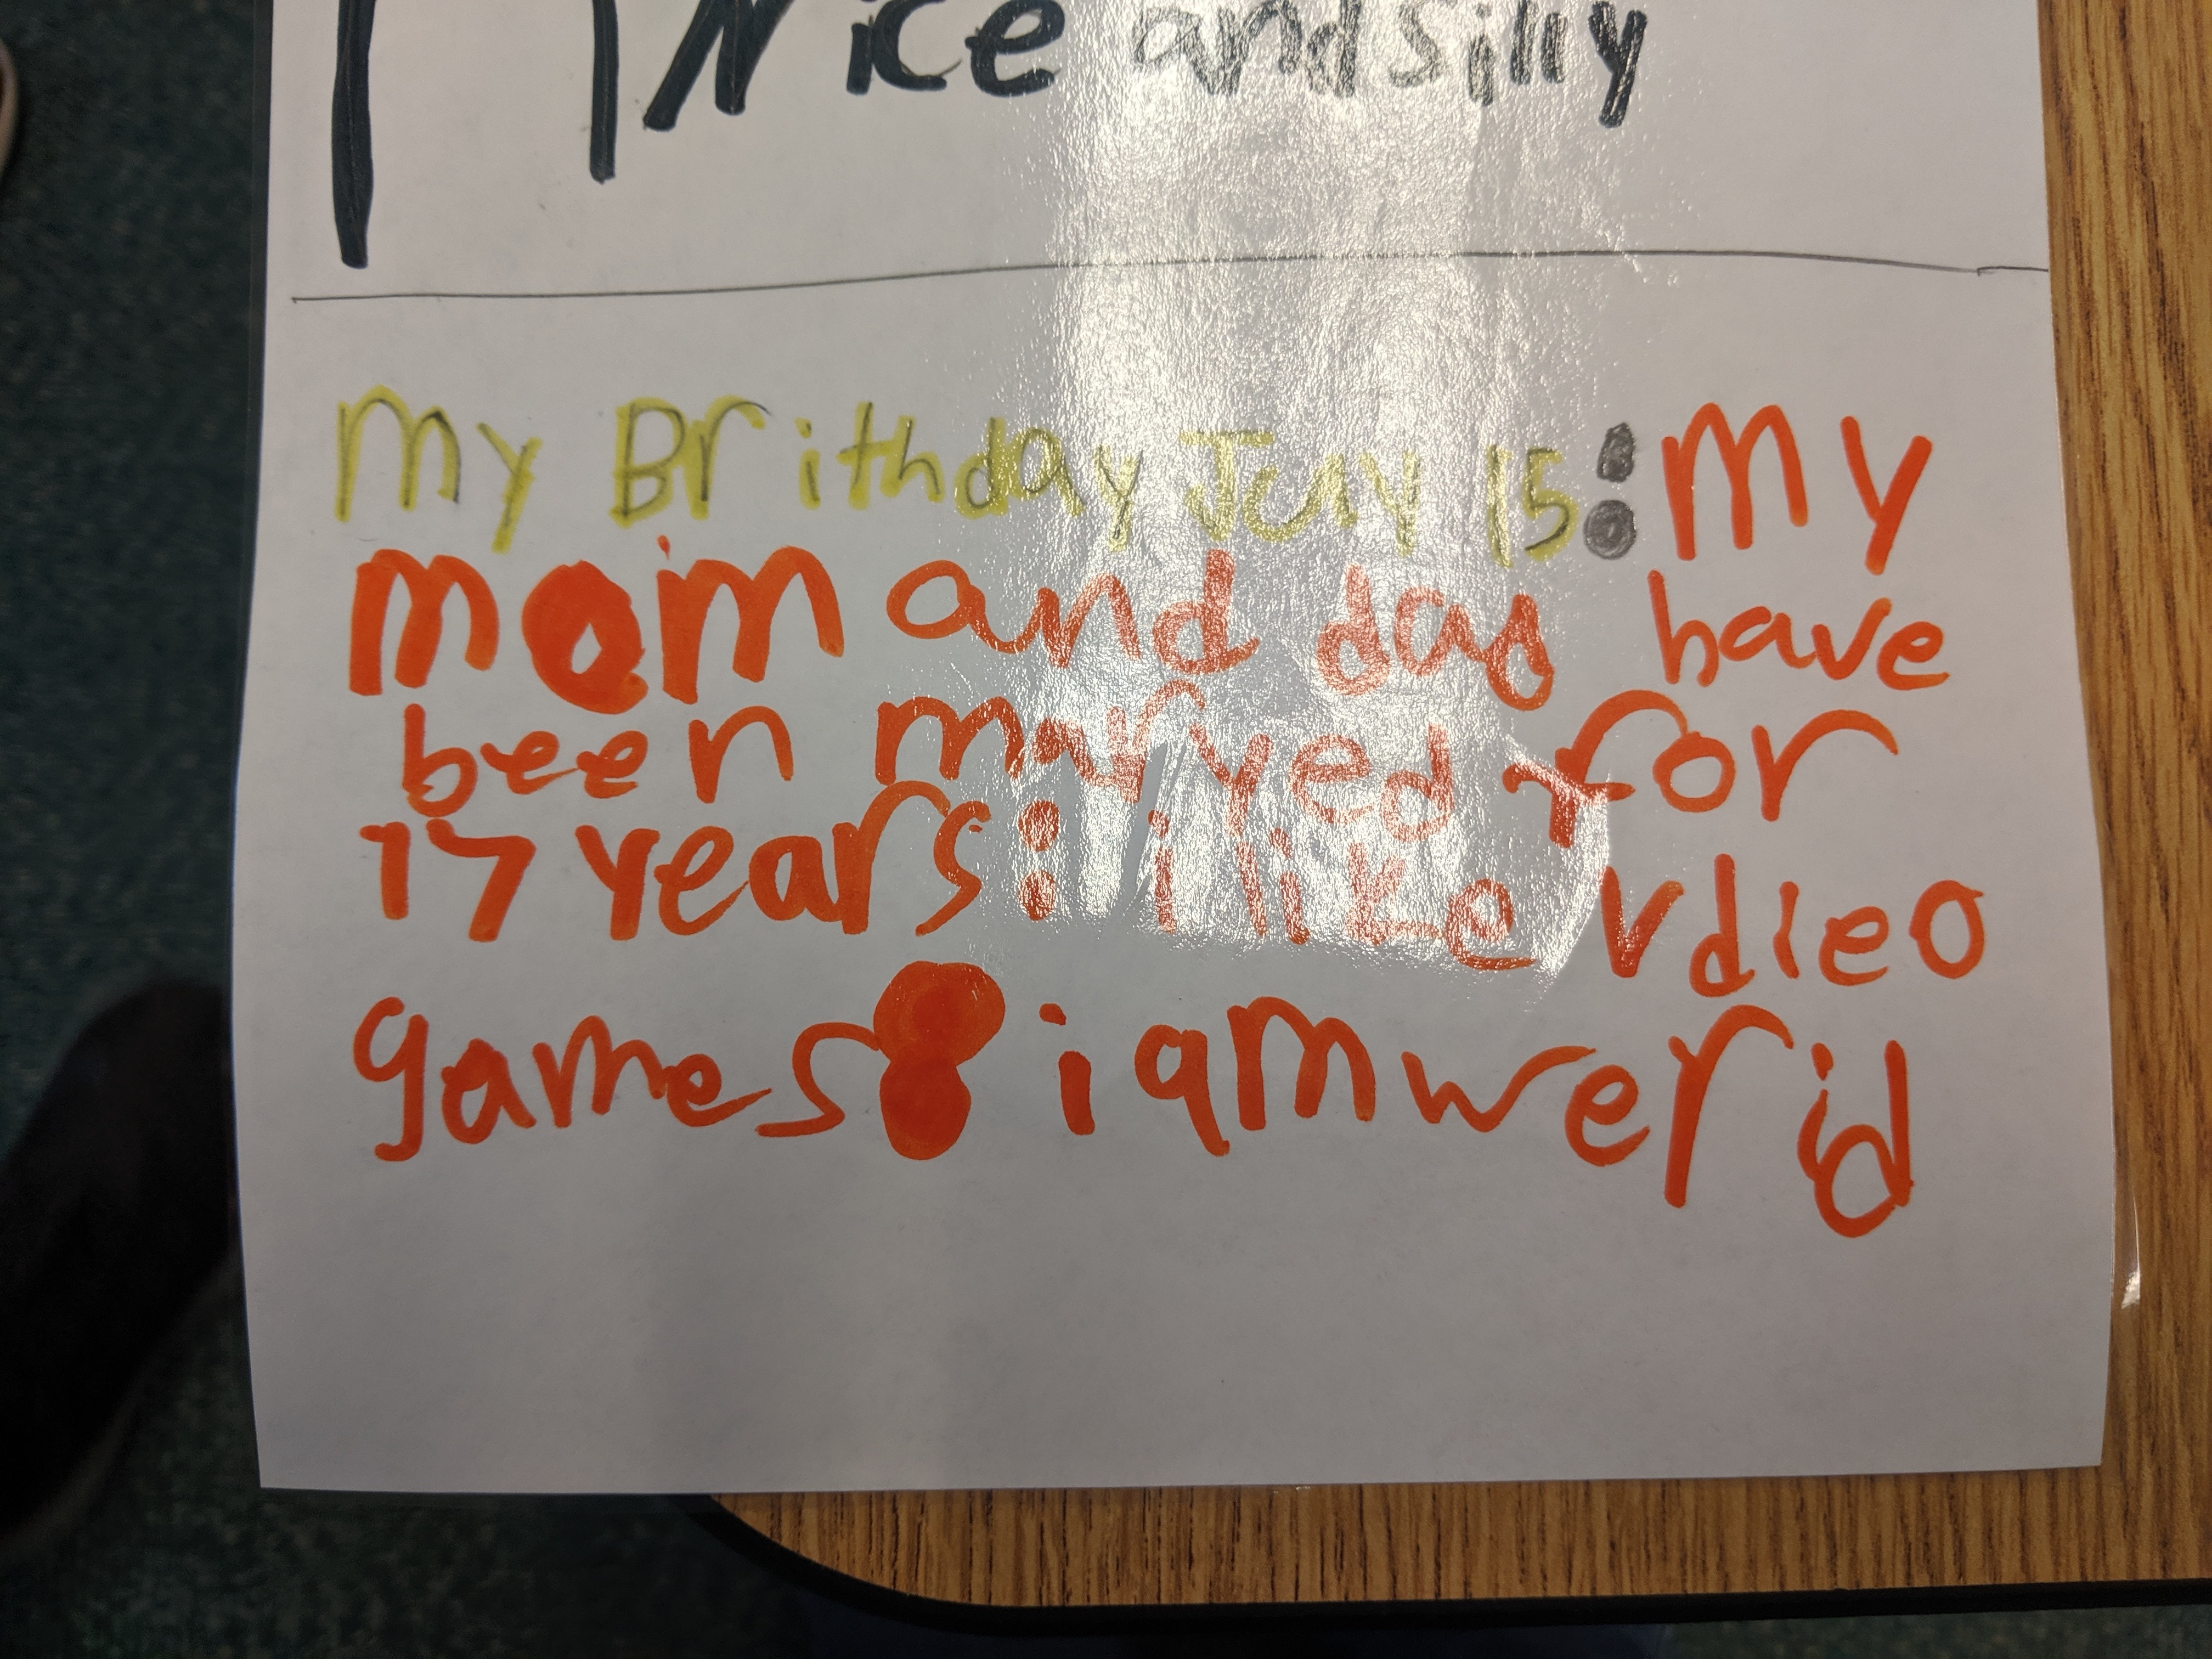 Nice and silly
My Brithday July 15:My
mom and dad have
been marryed for
17 years: i like vdieo
games: i am werid